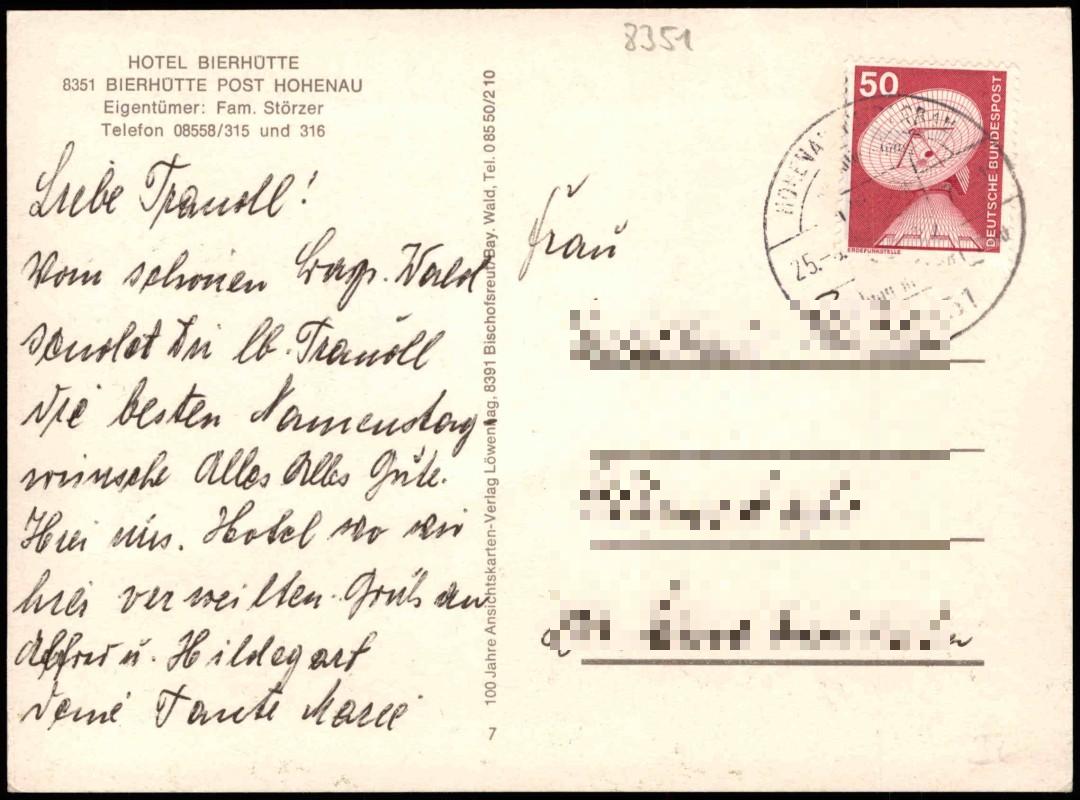 8351
HOTEL BIERHÜTTE
8351 BIERHÜTTE POST HOHENAU
Eigentümer: Fam. Störzer
Telefon 08558/315 und 316
Liebe Traudll!
Vom schönen Bayr. Wald
sendet Dir lb. Traudll
die besten Namenstag
wünsche Alles Alles Gute.
Hier uns. Hotel wo wir
hier verweilten. Gruß an
Alfred u. Hildegart
Deine Tante Marie
100 Jahre Ansichtskarten-Verlag Löwenhag, 8391 Bischofsreut/Bay. Wald, Tel. 0 85 50/2 10
7
50
DEUTSCHE BUNDESPOST
ERDEFUNKSTELLE
HOHENAU
25.
Frau